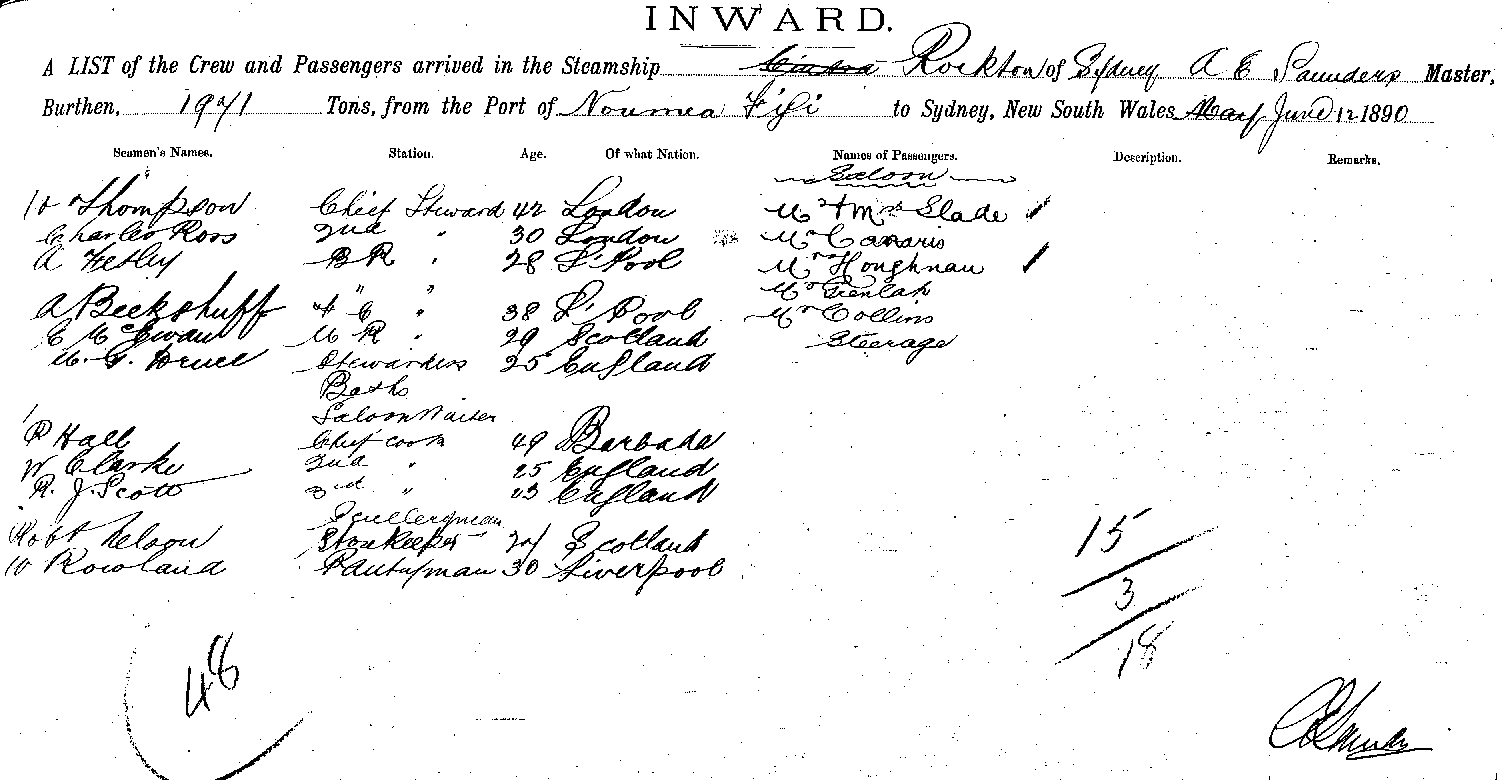 INWARD.
A LIST of the Crew and Passengers arrived in the Steamship Rockton of Sydney A E Saunders Master,
Burthen, 1971 Tons, from the Port of Noumea Fiji to Sydney, New South Wales June 12 1890
Seamen's Names. Station. Age. Of what Nation. Names of Passengers. Description. Remarks.
Saloon
W Thompson Chief Steward 42 London Mr & Mrs Slade
Charles Ross 2nd " 30 London Mr Canaris
A Fetley BR " 28 L'Pool Mr Houghnau
" "
A Beckshuff " 38 L'Pool Mr Collins
C McEwan " 29 Scotland Steerage
Stewardess 25 England
Baths
Saloon Waiter
R Hall Chief Cook 49 Barbada
W Clarke 2nd " 25 England
R. J. Scott 3rd " 23 England
Sculleryman
Robt Nelson Storekeeper 24 Scotland
W Rowland Pantryman 30 Liverpool
15
3
18
48